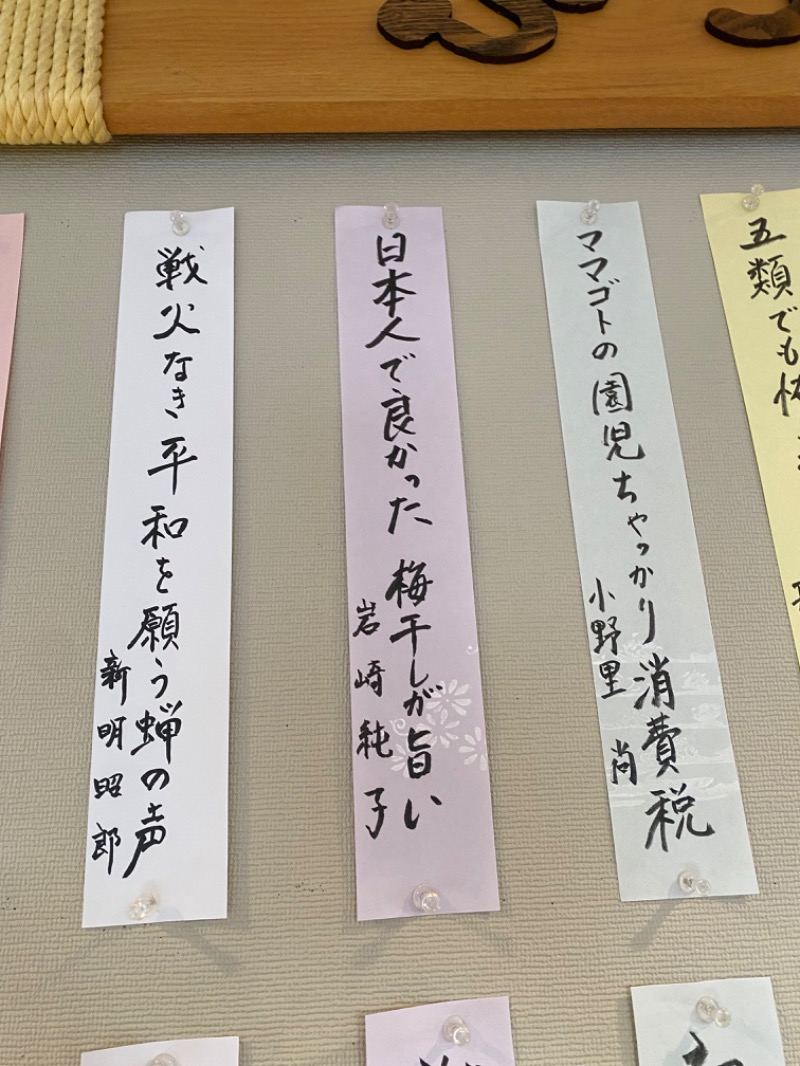 五類でも怖
ママゴトの園児ちゃっかり消費税
小野里 尚
日本人で良かった 梅干しが旨い
岩崎純子
戦火なき平和を願う蝉の声
新明昭郎